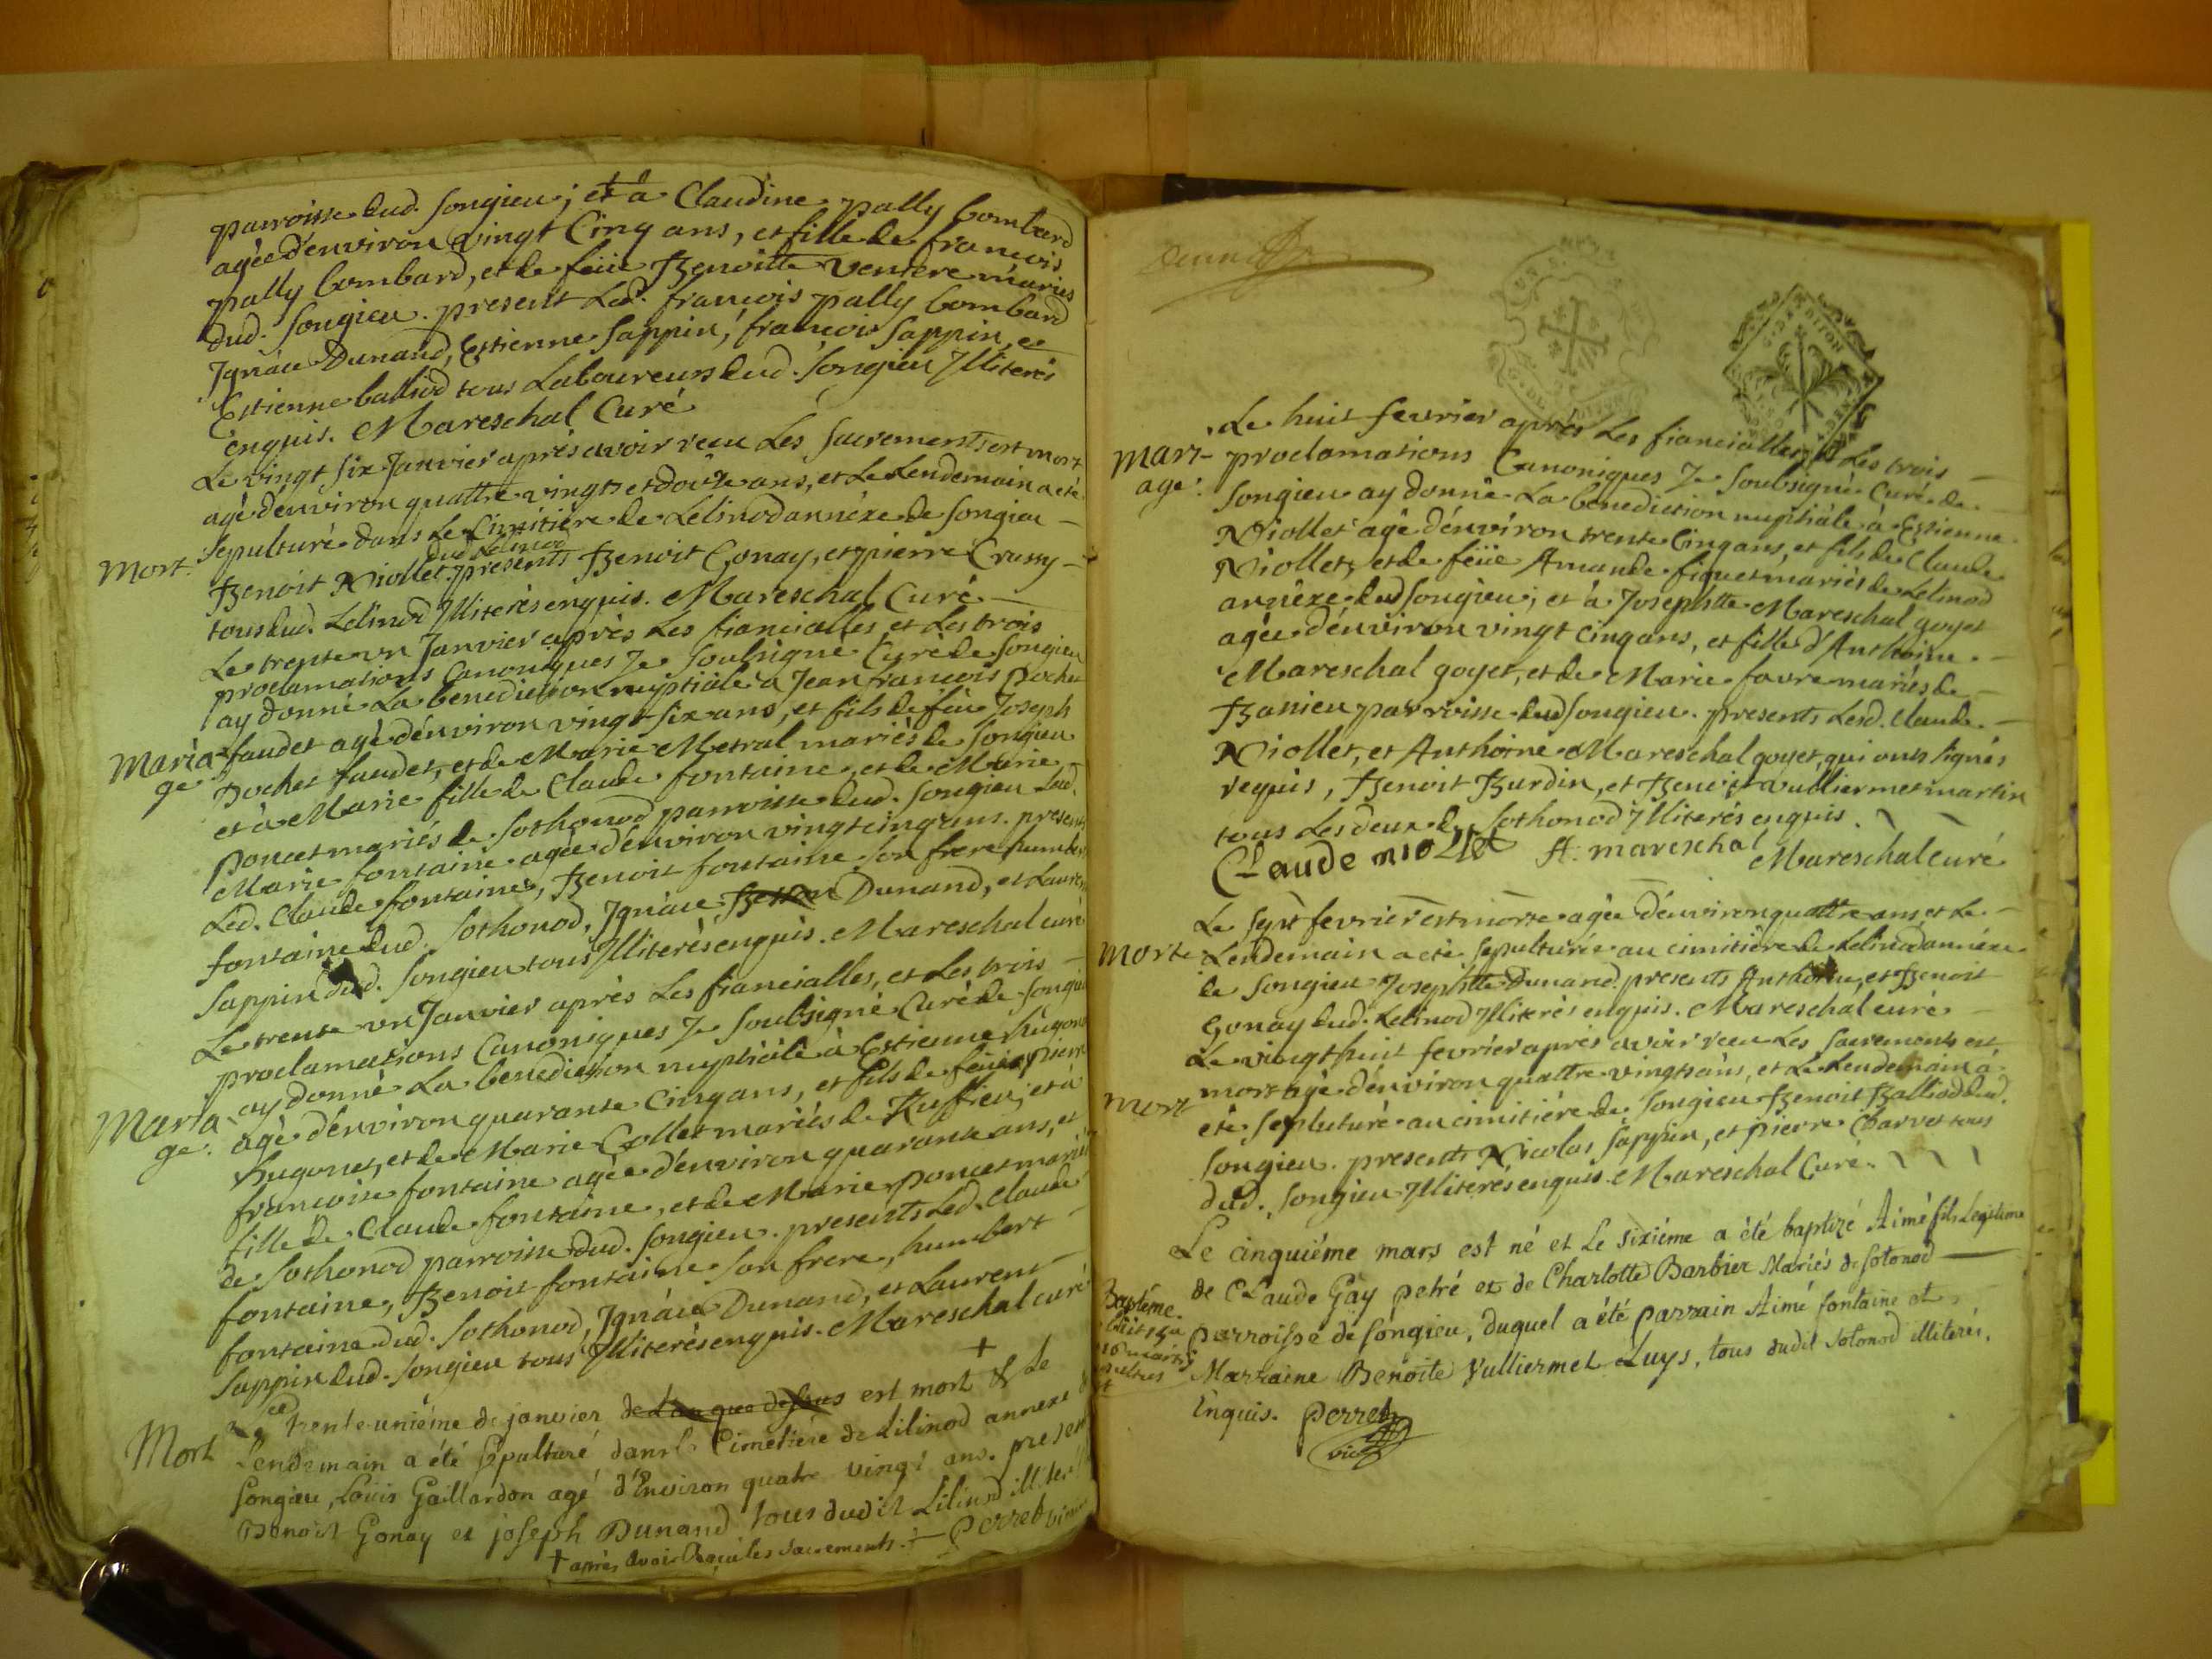 parroisse dud. songieu; et à Claudine pally bombard
agèe d'environ vingt Cinq ans, et fille de francois
pally bombard, et de feüe Benoitte vendre mariés
dud. songieu. present led. francois pally bombard
Ignàce Dunand, Estienne sappin, francois sappin, et
Estienne balliod tous Laboureurs dud. songieu Illiterés
enquis. Mareschal Curé
Le vingt six Janvier après avoir receu Les sacrements est mort
agè d'environ quattre vingts et douze ans, et Le Lendemain a eté
sepulturé dans Le Cimitière de Lelinod annèxe de songieu
Mort.
dud Lelinod
Benoit Niollet presents Benoit Gonay, et pierre Crussy
tous dud. Lelinod Illiterès enquis. Mareschal Curé
Le trente un Janvier après Les fiancialles et Les trois
proclamations Canoniques Je soubsigné Curé de songieu
ay donné La benediction nuptiale à Jean francois pochet
Maria
ge
faudet agè d'environ vingt six ans, et fils de feu Joseph
pochet faudet, et de Marie Metral mariès de songieu
et à Marie fille de Claude fontaine, et de Marie
poncet mariés de sothonod parroisse dud. songieu lad.
Marie fontaine agèe d'environ vingt cinq ans. presents
Led. Claude fontaine, Benoit fontaine son frere humbert
fontaine dud. sothonod, Ignàce Dunand, et Laurent
sappin dud. songieu tous Illiterès enquis. Mareschal curé
Le trente un Janvier après Les fiancialles, et Les trois
proclamations Canoniques Je soubsigné Curé de songieu
ay donnè La benediction nuptiale à Estienne hugonet
Maria
ge.
agè d'environ quarante cinq ans, et fils de feu pierre
hugonet, et de Marie Collet mariés de Ruffieu; et à
francoise fontaine agèe d'environ quarante ans, et
fille de Claude fontaine, et de Marie poncet mariés
de sothonod parroisse dud. songieu. presents Led. Claude
fontaine, Benoit fontaine son frere, humbert
fontaine dud. sothonod, Ignàce Dunand, et Laurent
sappin dud. songieu tous Illiterés enquis. Mareschal curé
+
Mort
Le trente-uniéme de janvier est mort & Le
Lendemain a été sepulturé dans le Cimetiére de Lilinod annexe
songieu, Louis Gaillardon agé d'Environ quatre vingt ans. present
Benoist Gonay et joseph Dunand tous dudit Lilinod illiter
+ après avoir Reçu les sacrements + Perret
Le huit fevrier après Les fiancialles, et Les trois
Mari-
age.
proclamations Canoniques Je soubsigné Curé de
songieu ay donné La benediction nuptiàle à Estienne
Niollet agè d'environ trente Cinq ans, et fils de Claude
Niollet, et de feüe Amande fiquet mariés de Lelinod
annèxe dud songieu; et à Josephtte Mareschal goyet
agèe d'environ vingt cinq ans, et fille d'Anthoine
Mareschal goyet, et de Marie favre mariés de
Banieu parroisse dud songieu. presents Lesd. Claude
Niollet, et Anthoine Mareschal goyet, qui ont signés
requis, Benoit Burdin, et Benoit vulliermet martin
tous Les deux de sothonod Illiterés enquis.
Claude niollet A: mareschal Mareschal curé
Le sept fevrier est morte agèe d'environ quattre ans et Le
Morte
Lendemain a eté sepulturée au cimitière de Lelinod annéxe
de songieu Josephtte Dunand. presents Anthoine, et Benoit
Gonay dud. Lelinod Illiterés enquis. Mareschal curé
Le vingt huit fevrier après avoir receu Les sacrements est
Mort
mort agè d'environ quattre vingts ans, et Le Lendemain a
eté sepulturé au cimitiére de songieu Benoit Balliod dud.
songieu. presents Nicolas sappin, et pierre Charvet tous
dud. songieu Illiterés enquis. Mareschal Curé.
Le cinquiéme mars est né et Le sixiéme a été baptizé Aimé fils Légitime
de CLaude Gay petré et de Charlotte Barbier Mariés de sotonod
Baptême
parroisse de songieu, duquel a été parrain Aimé fontaine et
Marraine Benoite Vulliermet Luys, tous dudit sotonod illiterés,
Enquis. Perret
vic